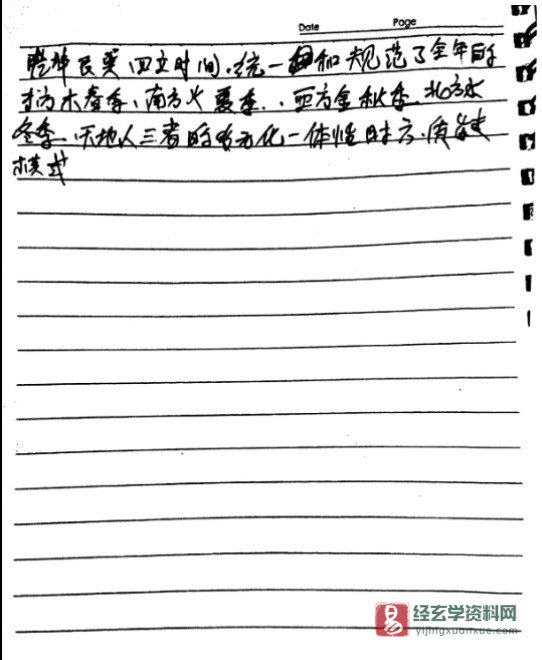 Date Page
艮巽四立时间.统一和规范了全年的
东方木春季、南方火夏季..西方金秋季.北方水
冬季.天地人三者的多元化一体性时方.
模式
经玄学资料网
yijingxuanxue.com